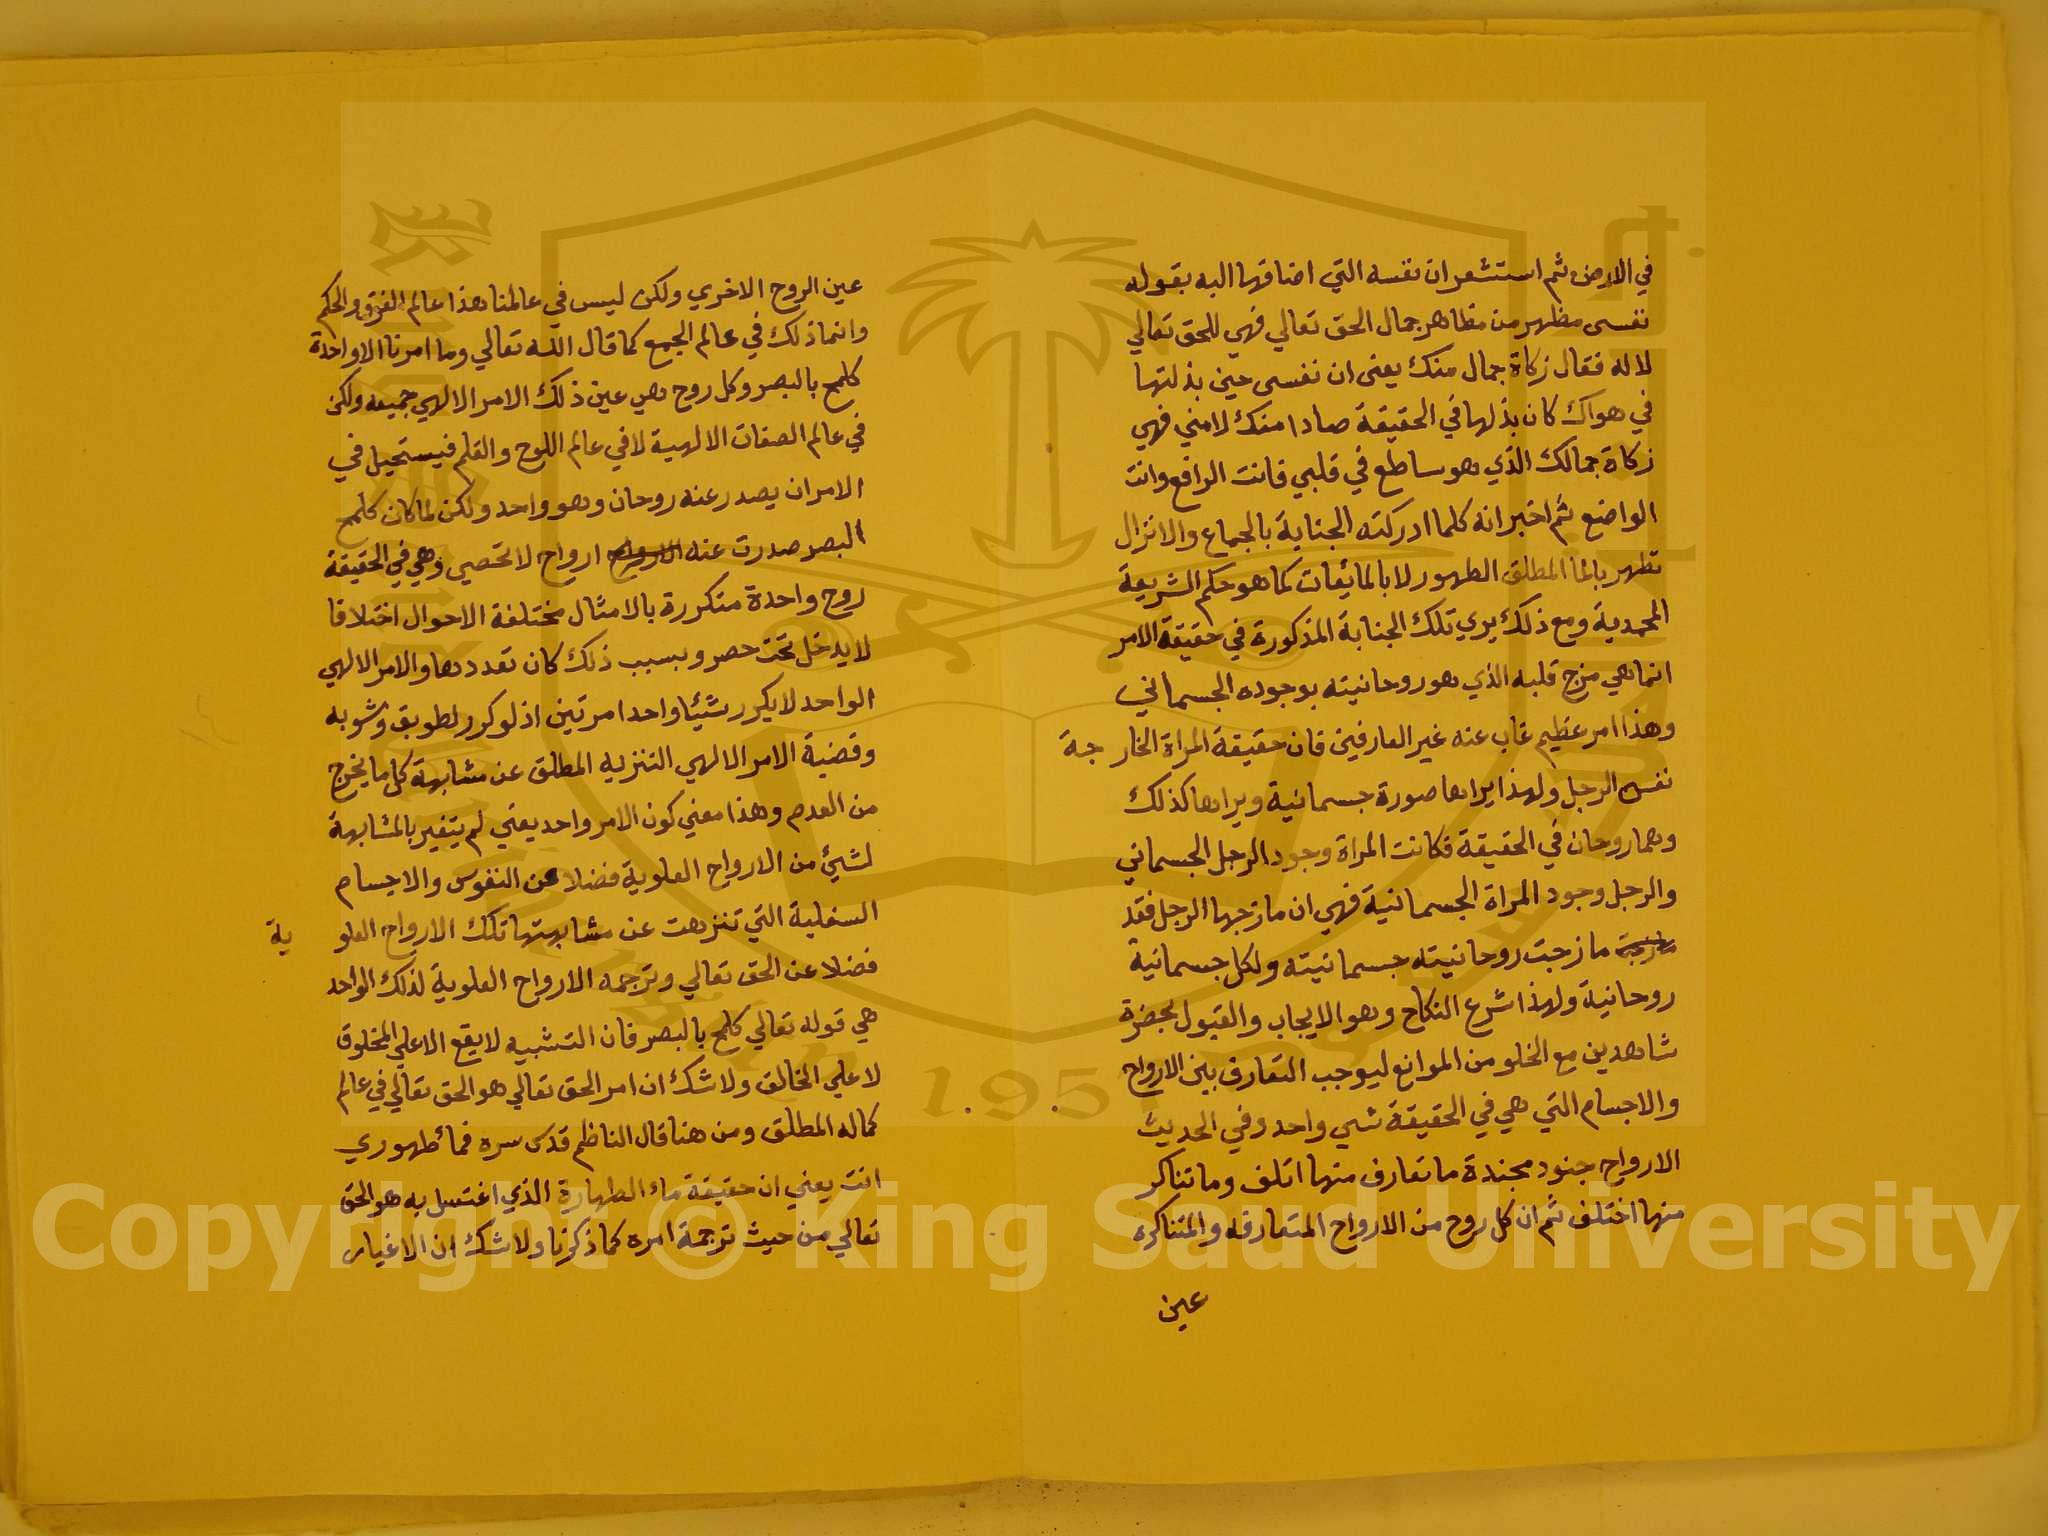 في الارض ثم استشعر ان نفسه التي اضافها اليه بقوله
نفسى مظهر من مظاهر جمال الحق تعالي فهي للحق تعالي
لا له فقال زكاة جمال منك يعنى ان نفسى حين بذلتها
في هواك كان بذلها في الحقيقة صادا منك لا مني فهي
زكاة جمالك الذي هو ساطع في قلبي فانت الرافع وانت
الواضع ثم اخبر انه كلما ادركته الجناية بالجماع والانزال
تطهر بالما المطلق الطهور لا بالمائعات كما هو حكم الشريعة
المحمدية ومع ذلك يري تلك الجنابة المذكورة في حقيقة الامر
انما هي مزج قلبه الذي هو روحانيته بوجوده الجسماني
وهذا امر عظيم غاب عنه غير العارفين فان حقيقة المراة الخارجة
نفس الرجل ولهذا يراها صورة جسمانية ويراها كذلك
وهما روحان في الحقيقة فكانت المراة وجود الرجل الجسماني
والرجل وجود المراة الجسمانية فهي ان مازجها الرجل فقد
مازجت روحانيته جسمانيته ولكل جسمانية
روحانية ولهذا شرع النكاح وهو الايجاب والقبول بحضرة
شاهدين مع الخلو من الموانع ليوجب التعارف بين الارواح
والاجسام التي هي في الحقيقة شي واحد وفي الحديث
الارواح جنود مجندة ما تعارف منها اتلف وما تناكر
منها اختلف ثم ان كل روح من الارواح المتعارفه والمتناكره
عين
عين الروح الاخري ولكن ليس في عالمنا هذا عالم الفرق والحكم
وانما ذلك في عالم الجمع كما قال الله تعالي وما امرنا الا واحدة
كلمح بالبصر وكل روح هي عين ذلك الامر الالهي جميعه ولكن
في عالم الصفات الالهية لا في عالم اللوح والقلم فيستحيل في
الامر ان يصدر عنه روحان وهو واحد ولكن لما كان كلمح
البصر صدرت عنه ارواح لا تحصي وهي في الحقيقة
روح واحدة متكررة بالامثال مختلفة الاحوال اختلافا
لا يدخل تحت حصر وبسبب ذلك كان تعددها والامر الالهي
الواحد لا يكرر شيئا واحدا مرتين اذ لو كرر لطوبق وشوبه
وقضية الامر الالهي التنزيه المطلق عن مشابهة كل ما يخرج
من العدم وهذا معني كون الامر واحد يعني لم يتغير بالمشابهة
لشيئ من الارواح العلوية فضلا عن النفوس والاجسام
السفلية التي تنزهت عن مشابهتها تلك الارواح العلوية
فضلا عن الحق تعالي وترجمه الارواح العلوية لذلك الواحد
هي قوله تعالي كلمح بالبصر فان التشبيه لا يقع الا علي المخلوق
لا علي الخالق ولا شك ان امر الحق تعالي هو الحق تعالي في عالم
كماله المطلق ومن هنا قال الناظم قدس سره فماء طهوري
انت يعني ان حقيقة ماء الطهارة الذي اغتسل به هو الحق
تعالي من حيث ترجمة امره كما ذكرنا ولا شك ان الاغيار
1957
Copyright © King Saud University